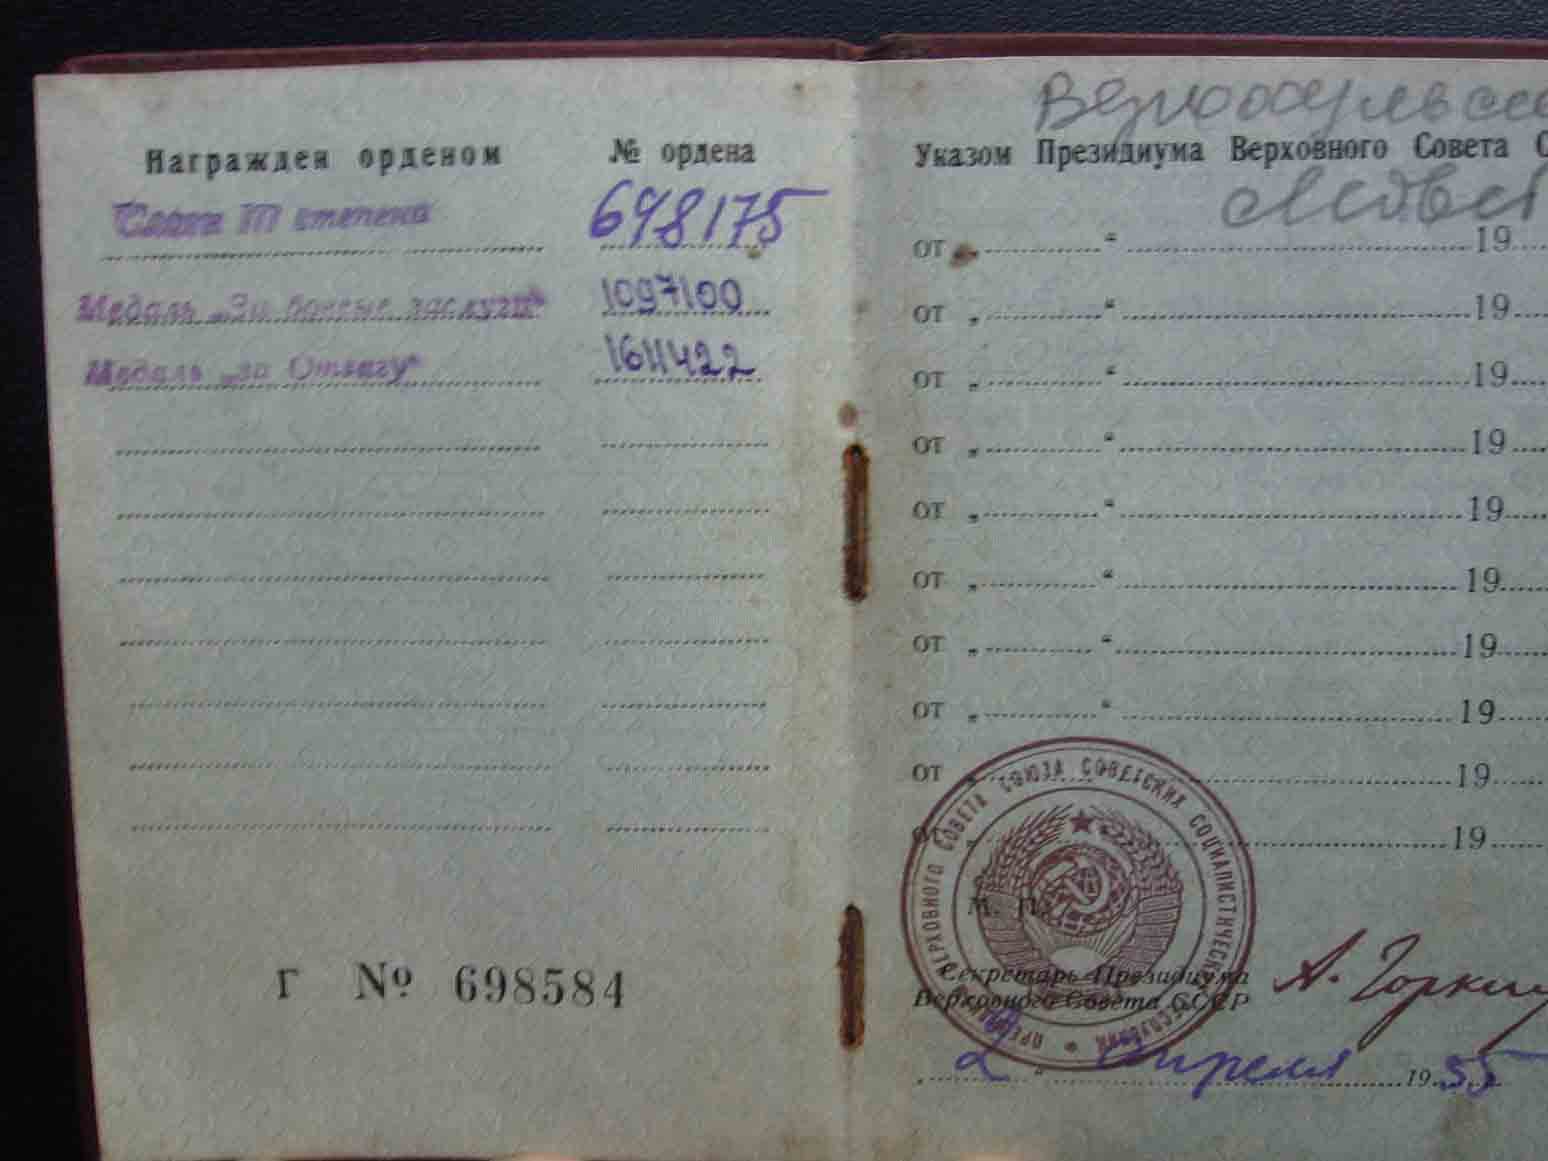 Награжден орденом № ордена
Славы III степени 648175
Медаль „За боевые заслуги“ 1097100
Медаль „за Отвагу“ 1611422
Г № 698584
Указом Президиума Верховного Совета С
от „ “ 19
от „ “ 19
от „ “ 19
от „ “ 19
от „ “ 19
от „ “ 19
от „ “ 19
от „ “ 19
от „ “ 19
19
М. П.
ВЕРХОВНОГО СОВЕТА СОЮЗА СОВЕТСКИХ СОЦИАЛИСТИЧЕСКИХ
Секретарь Президиума
Верховного Совета СССР
А. Горкин
„2“ апреля 1955